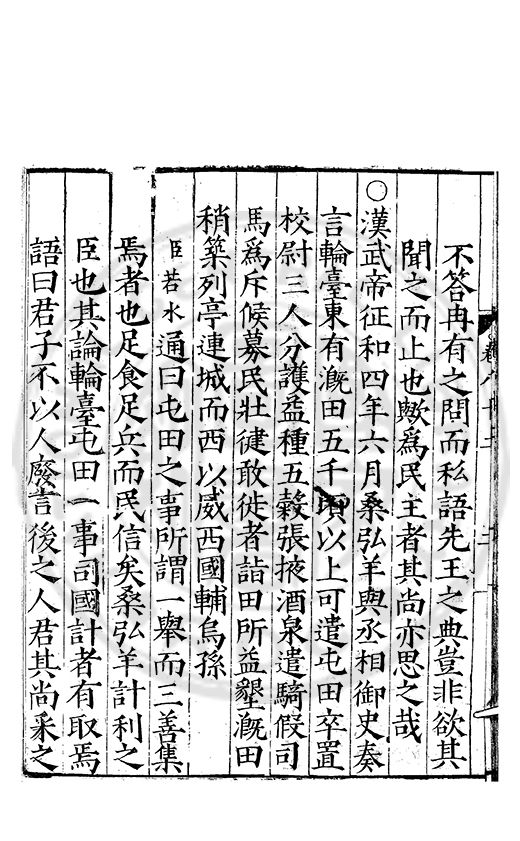 不答冉有之問而私語先王之典豈非欲其
聞之而止也歟為民主者其尚亦思之哉
○漢武帝征和四年六月桑弘羊與丞相御史奏
言輪臺東有溉田五千頃以上可遣屯田卒置
校尉三人分護益種五穀張掖酒泉遣騎假司
馬為斥候募民壯健敢徙者詣田所益墾溉田
稍築列亭連城而西以威西國輔烏孫
臣若水通曰屯田之事所謂一舉而三善集
焉者也足食足兵而民信矣桑弘羊計利之
臣也其論輪臺屯田一事司國計者有取焉
語曰君子不以人廢言後之人君其尚采之